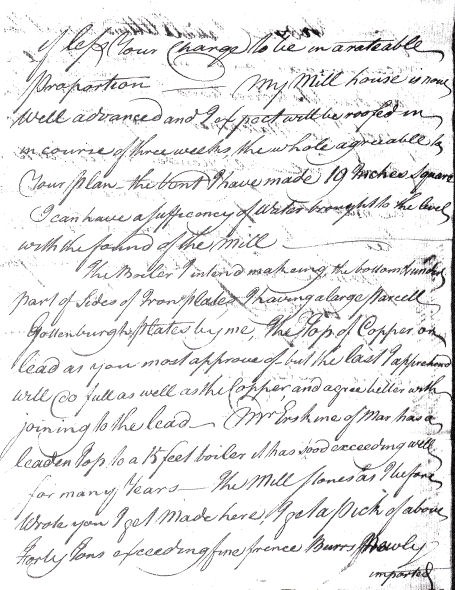 if less your Charge to be in a rateable
proportion — My Mill house is now
well advanced and I expect will be roofed in
in course of three weeks, the whole agreeable to
Your plan – the bont I have made 19 Inches square
I can have a sufficency of Water brought to the level
with the found of the Mill —
The Boiler I intend making, the bottom & under
part of sides of Iron plates I having a large parcell
Gottenburgh plates by me, the Top of Copper, or
lead as you most approve of – but the last I apprehend
will do full as well as the Copper, and agree better with
joining to the lead – Mr Erskine of Mar has a
leaden Top to a 15 feet boiler it has stood exceeding well
for many Years – The Mill stones as I before
Wrote you I get Made here, I get a pick of above
Forty Tons exceeding fine french Burrs newly
imported